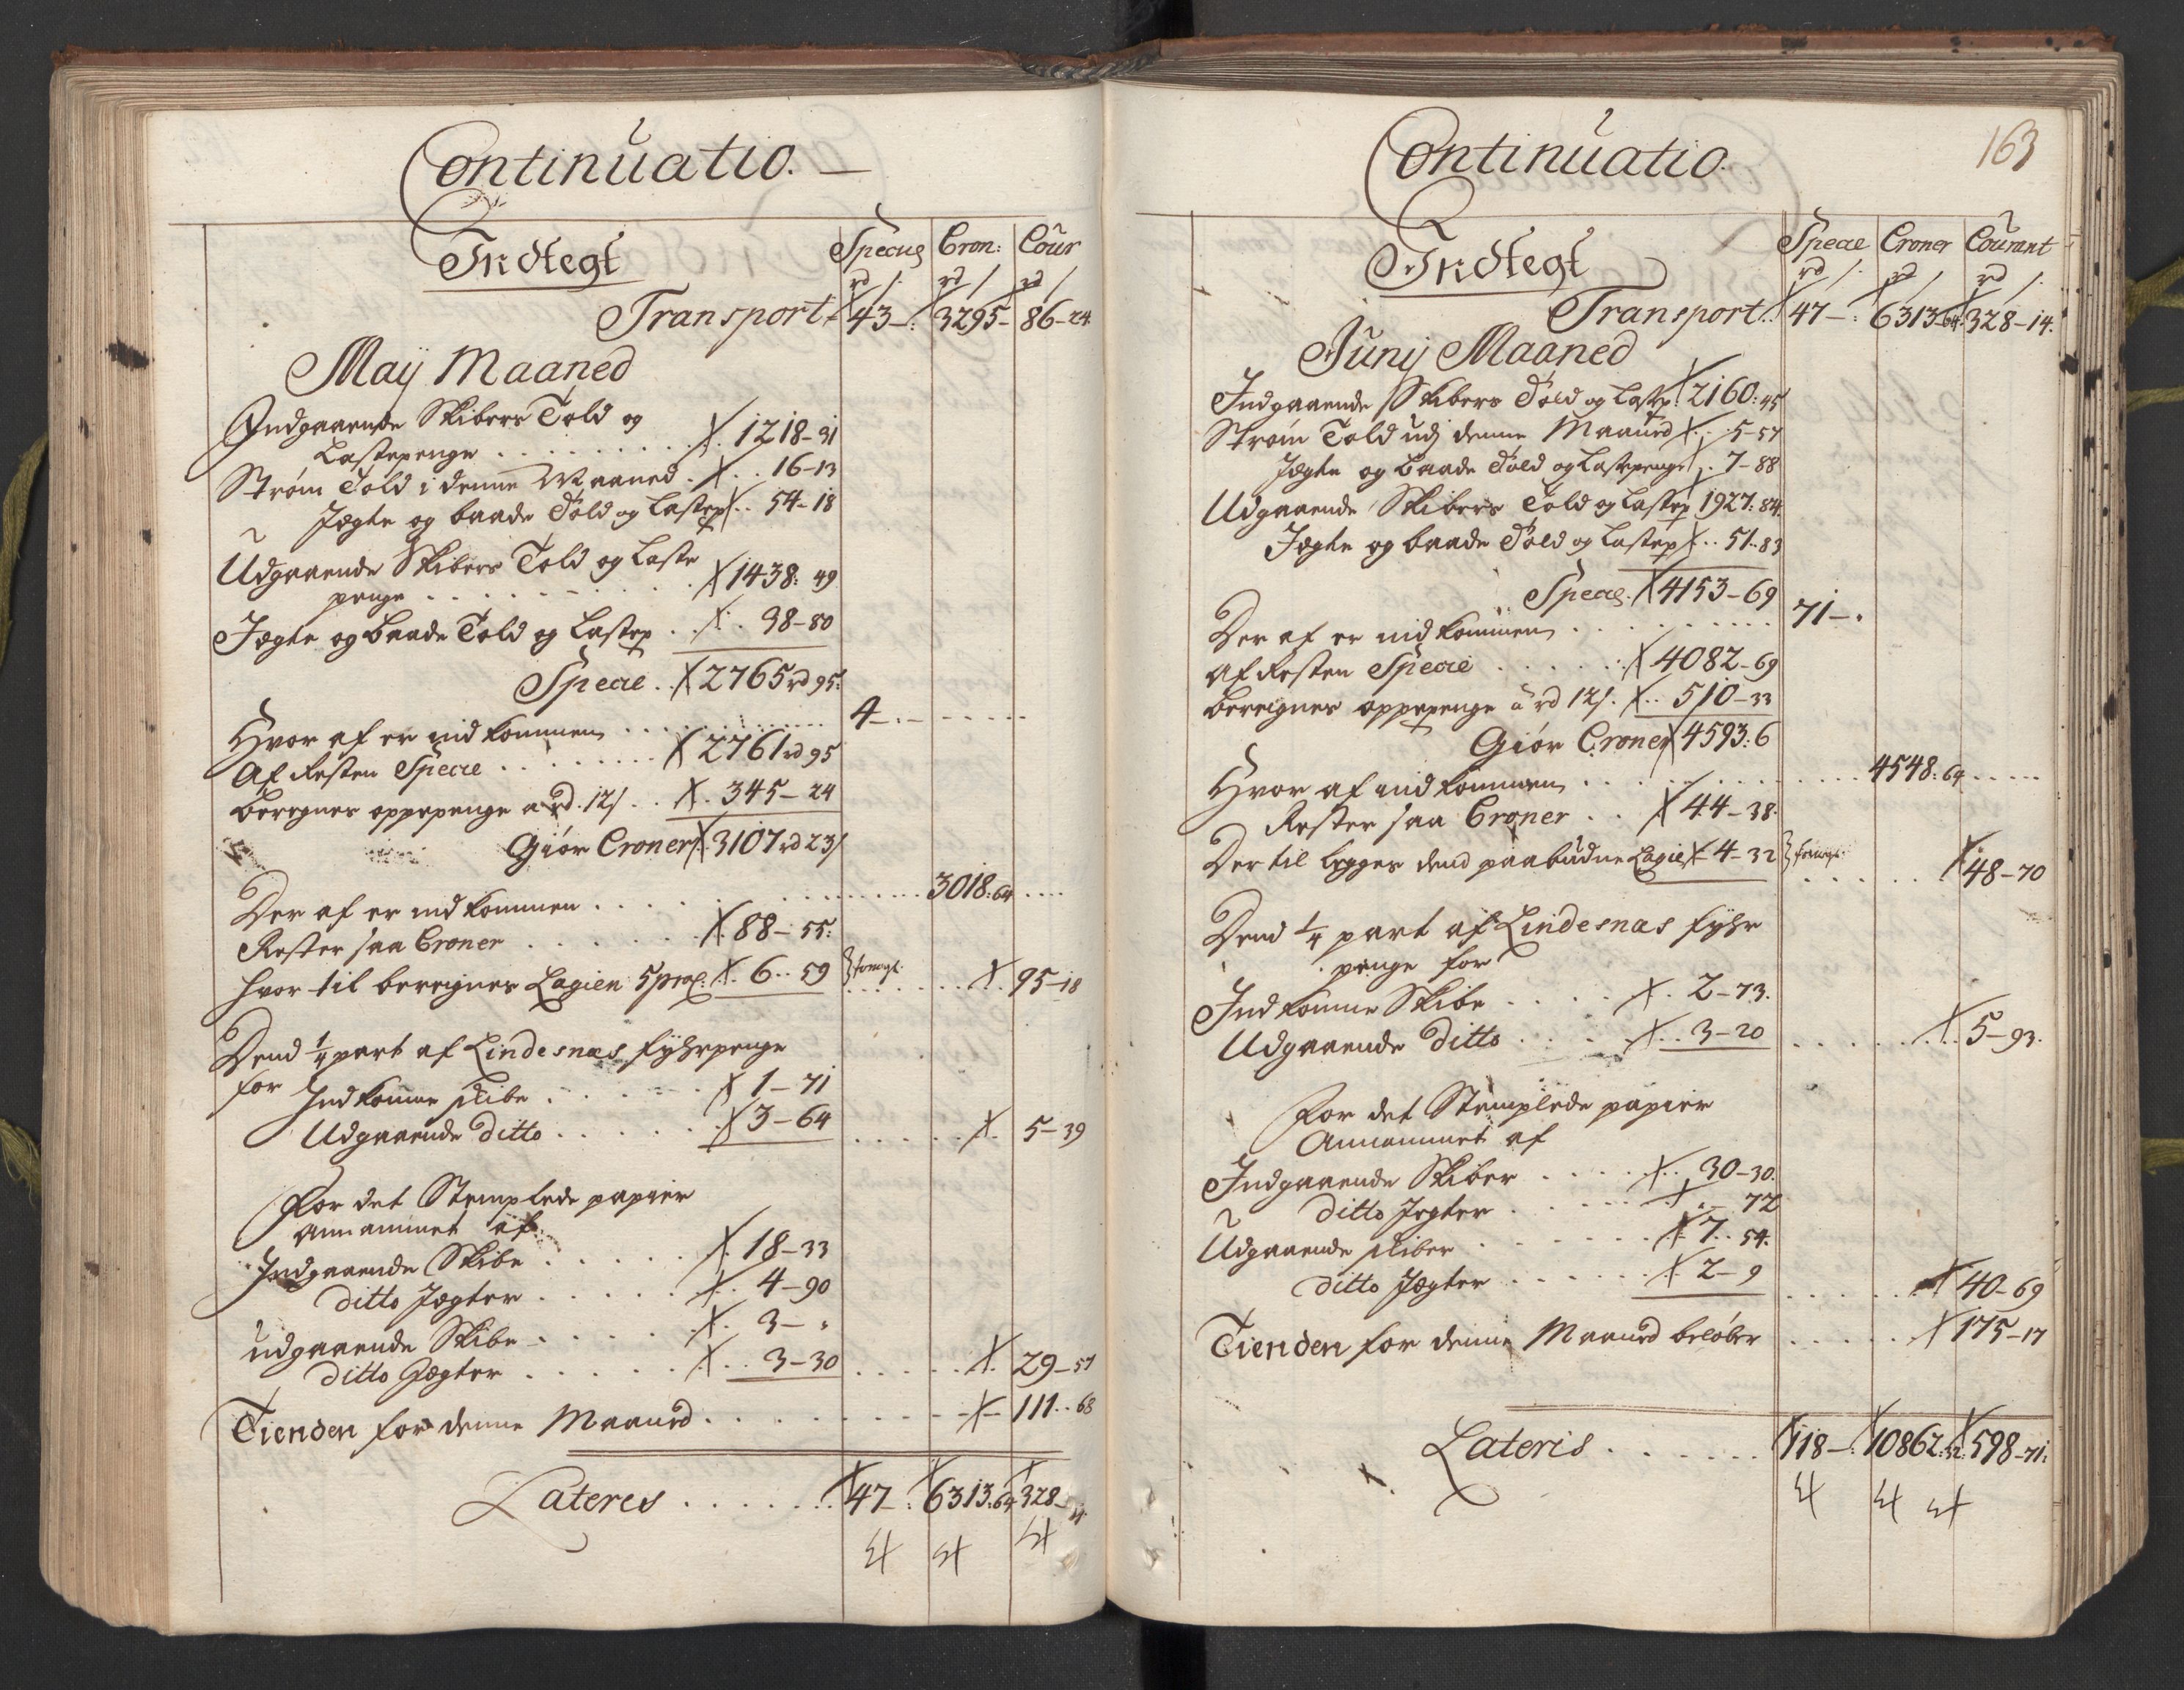 Continuatio.
Indtegt
Specie Cron: Cour
rd / rd / rd /
Transport 43 —: 3295 — 86-24
Maij Maaned
Indgaaende Skibers Told og
Lastepenge . . . . . . . . 1218-31
Strøm Told i denne Maaned . . . 16-13
Jægte og baade Told og Lastep . . 54-18
Udgaaende Skibers Told og Laste
penge . . . . . . . . . 1438: 49
Jægte og baade Told og Lastep . . . 38-80
Specie . . 2765 rd 95:
Hvor af er indkommen . . . . . . . . . 4 —
Af Resten Specie . . . . . . . . 2761 rd 95
beregnes oppepenge a rd. 12/ . . . 345-24
Giør Croner 3107 rd 23/
Der af er indkommen . . . . . . . . . 3018: 64
Rester saa Croner . . . . . . . 88-55:
hvor til beregnes Lagien 5 proc: . 6 .. 59 . . . . . 95-18
Dend 1/4 part af Lindesnæs fyhrpenge
for Indkomne skibe . . . . . . 1-71
Udgaaende ditto . . . . . . . 3-64 . . . . . 5-39
For det Stemplede papier
annammet af
Indgaaende Skibe . . . . . 18-33
ditto Jægter . . . . . 4-90
udgaaende Skibe . . . . . 3 —
ditto Jægter . . . . . 3-30 . . . . . 29-57
Tienden for denne Maaned . . . . . . . . . 111 .. 68
Lateres . . . . . . . 47 —: 6313: 64 328-14
Continuatio.
163
Indtegt
Specie Croner Courant
rd / rd / rd /
Transport 47 —: 6313-64: 328-14.
Junij Maaned
Indgaaende Skibers Told og Lastep: 2160: 45
Strøm Told udj denne Maaned . . . 5-57
Jægte og baade Told og Lastepenge . . 7-88
Udgaaende Skibers Told og Lastep 1927: 84.
Jægte og baade Told og Lastep . . 51 .. 83
Specie 4153-69
Der af er indkommen . . . . . . . . . 71 —.
Af Resten Specie . . . . . . 4082-69
beregnes oppepenge a rd 12/. . . 510-33
Giør Croner 4593: 6
Hvor af indkommen . . . . . . . . . 4548: 64
Rester saa Croner . . . 44-38.
Der til legges dend paabudne Lagie 4-32 . . . . . . 48-70
Dend 1/4 part af Lindesnæs fyhr
penge for
Indkomne Skibe . . . . . 2-73.
Udgaaende ditto . . . . . 3-20 . . . . . . 5-93.
For det Stemplede papier
Annammet af
Indgaaende Skiber . . . . . 30-30.
ditto Jegter . . . . . . — 72
Udgaaende skiber . . . . . . 7 .. 54.
ditto Jægter . . . . . . 2-9 . . . . . . 40-69
Tienden for denne Maaned beløber . . . . . 175-17
Lateris . . . . . . 118 —: 10862: 32: 598-71: